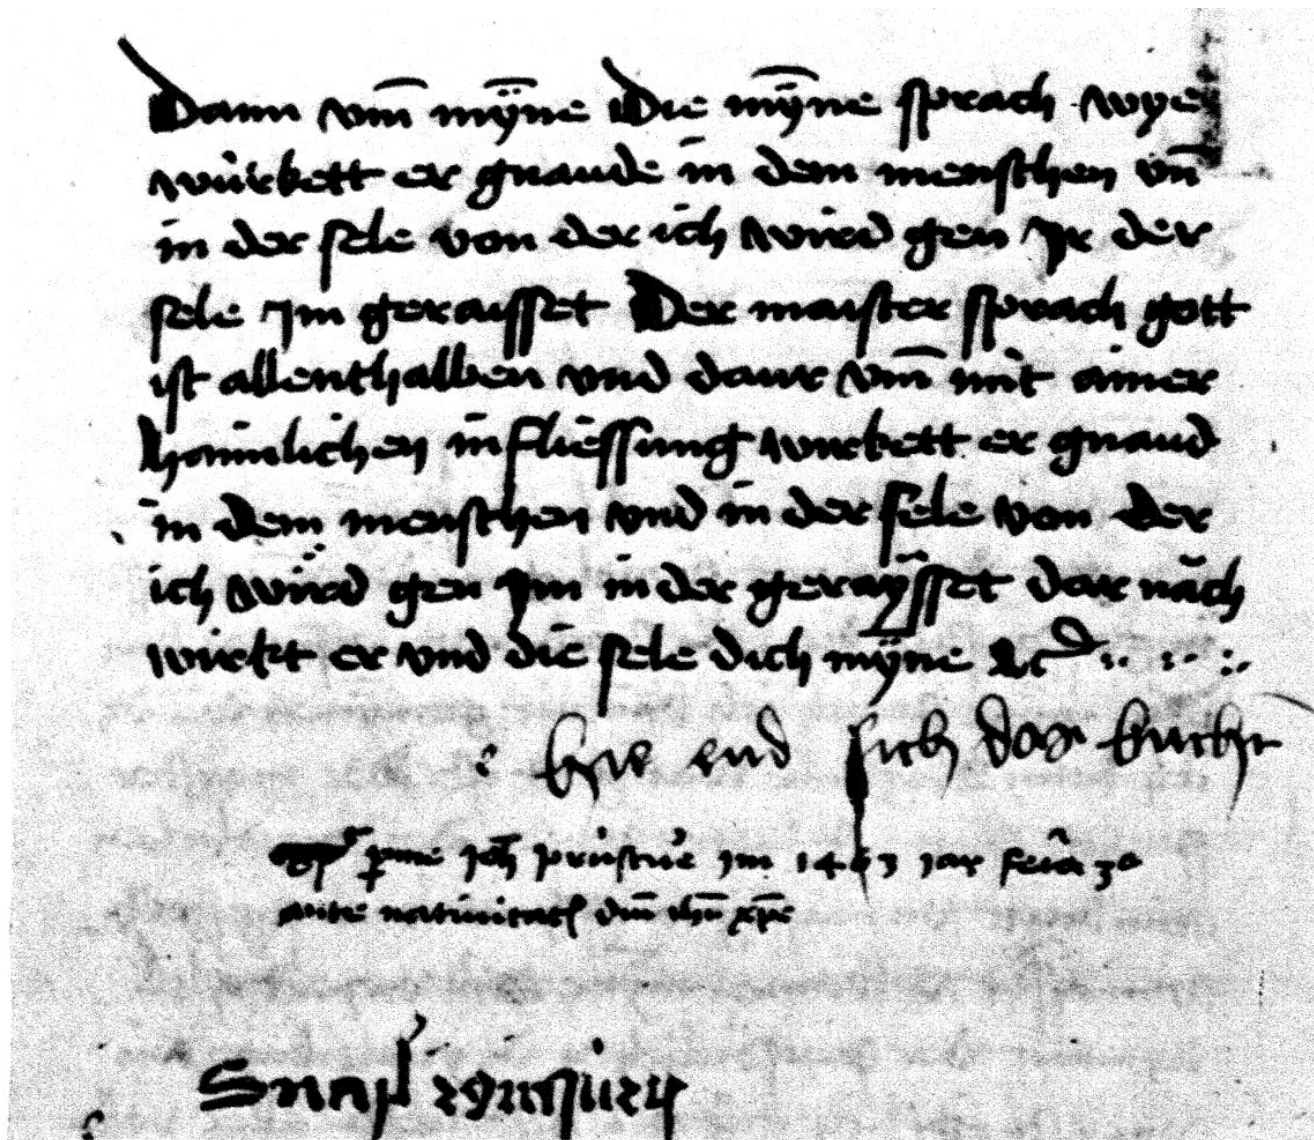 Dann vm̄ mӱne Die mӱne sprach wye
würkett er gnaude in dem menschen vn̄
in der sele von der ich wird gen Jr der
sele Jm geraisset Der maister sprach gott
ist allenthalben vnd daur vm̄ mit ainer
haimlichen infliessung wurkett er gnaud
in dem menschen vnd in der sele von der
ich würd gen Jm in der geraÿsset dar năch
wirkt er vnd die sele dich mӱne &c
hie end sich daz buch
p me Joh im jar feria 3a
ante natiuitat dm̄ ihū xp̄e